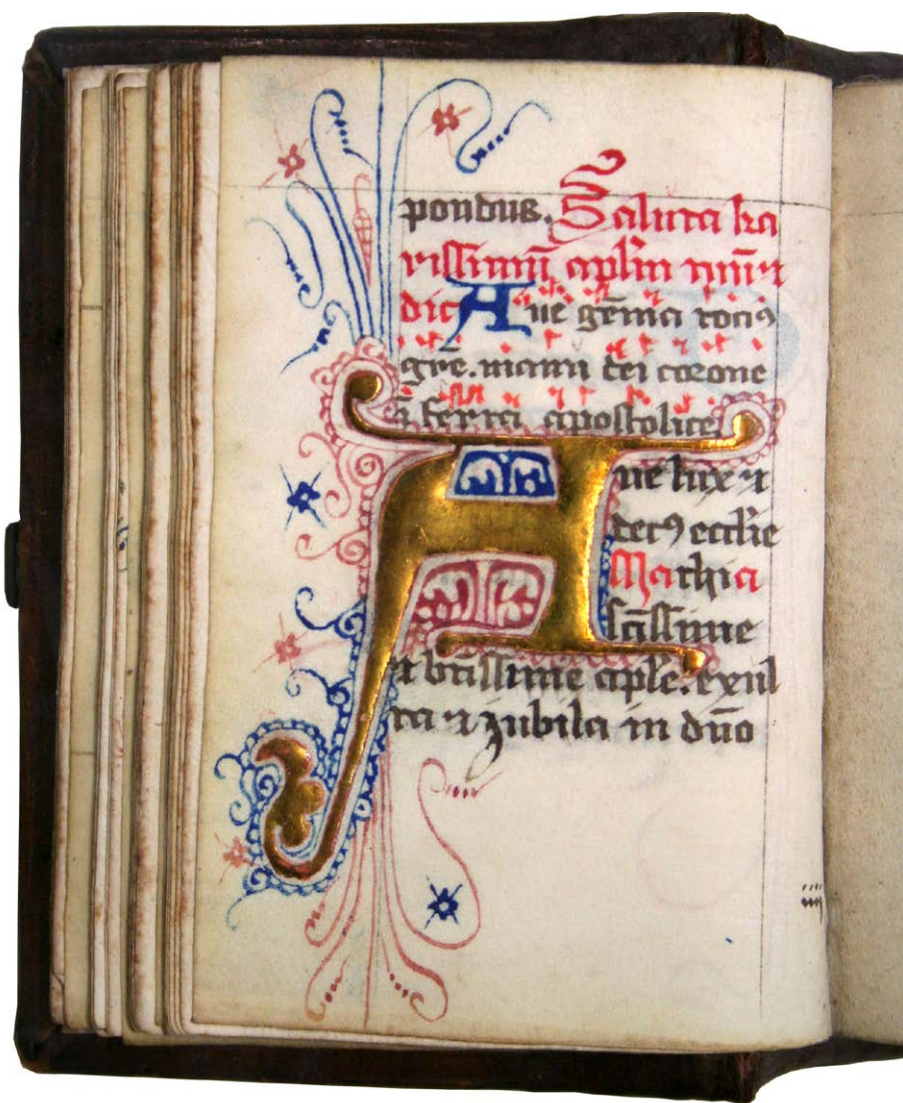 pondus. Saluta ka
rissimū aplm nrm ⁊
dic Aue gēma tociꝰ
gre. manu dei corone
apostolice
Aue lux ⁊
decꝰ ecclie
Mathia
scissime
⁊ btissime aple. exul
ta ⁊ iubila in dño